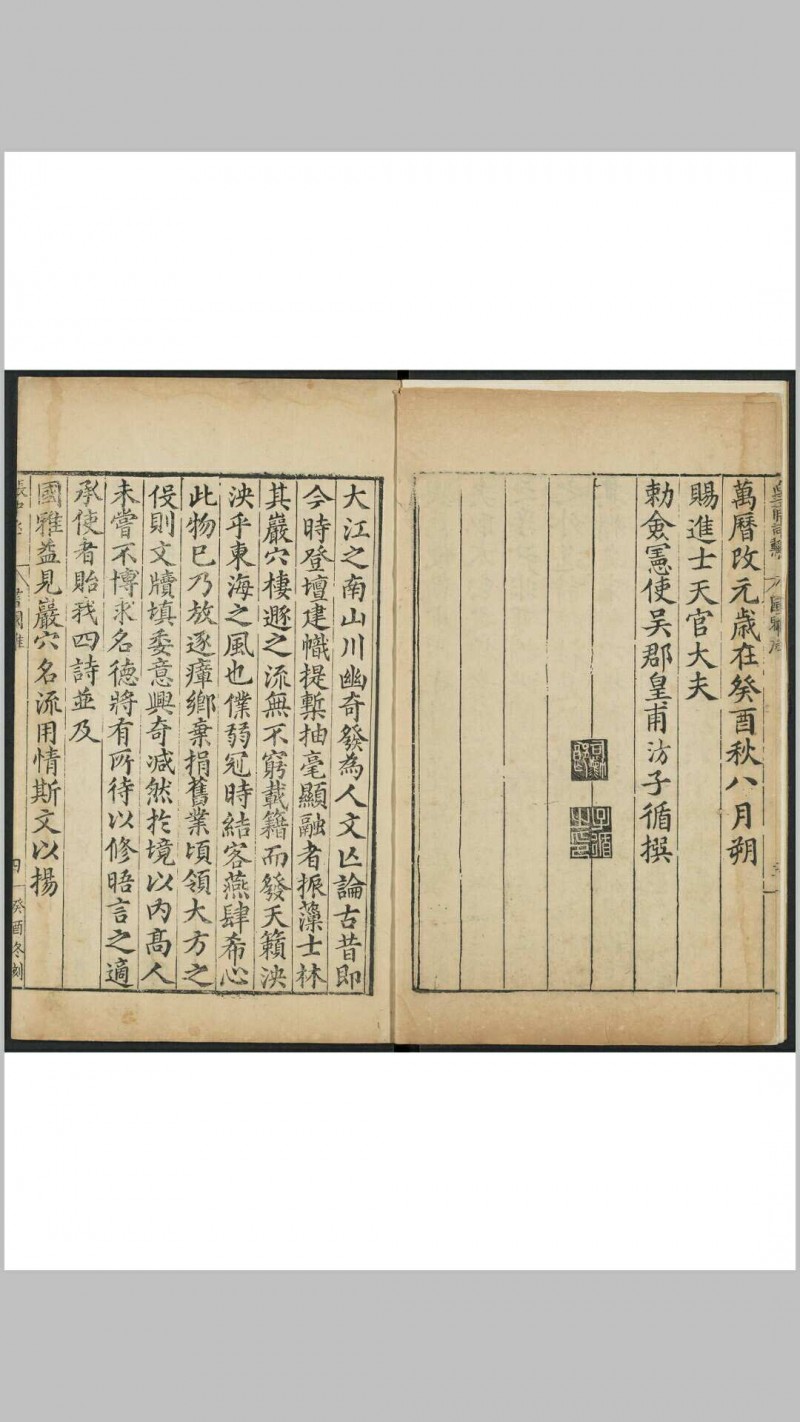 萬曆改元歲在癸酉秋八月朔
賜進士天官大夫
勅僉憲使吳郡皇甫汸子循撰
子循
大江之南山川幽奇發為人文亾論古昔即
今時登壇建幟提槧抽毫顯融者振藻士林
其巖穴棲遯之流無不窮載籍而發天籟泱
泱乎東海之風也僕弱冠時結客燕肆希心
此物已乃放逐瘴鄉棄捐舊業頃領大方之
役則文牘填委意興奇減然於境以內高人
未嘗不博求名德將有所待以修晤言之適
承使者貽我四詩並及
國雅益見巖穴名流用情斯文以揚
書國雅
四
癸酉冬刻